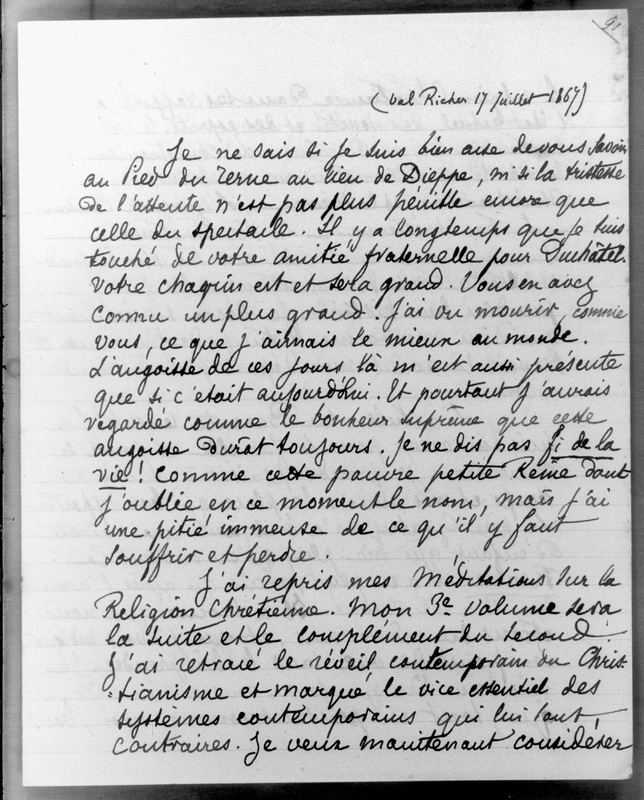 91
(Val Richer 17 Juillet 1867)
Je ne sais si je suis bien aise de vous savoir
au Pied du Terne au lieu de Dieppe, ni si la tristesse
de l'attente n'est pas plus pénible encore que
celle du spectacle. Il y a longtemps que je suis
touché de votre amitié fraternelle pour Duchâtel.
Votre chagrin est et sera grand. Vous en avez
connu un plus grand. J'ai vu mourir, comme
vous, ce que j'aimais le mieux au monde.
L'angoisse de ces jours là m'est aussi présente
que si c'était aujourd'hui. Et pourtant j'aurais
regardé comme le bonheur suprême que cette
angoisse durât toujours. Je ne dis pas fi de la
vie ! Comme cette pauvre petite Reine dont
j'oublie en ce moment le nom, mais j'ai
une pitié immense de ce qu'il y faut
souffrir et perdre.
J'ai repris mes Méditations sur la
Religion Chrétienne. Mon 3e volume sera
la suite et le complément du second.
J'ai retraié le réveil contemporain du Chris-
-tianisme et marqué le vice essentiel des
systèmes contemporains qui lui sont,
contraires. Je veux maintenant considérer